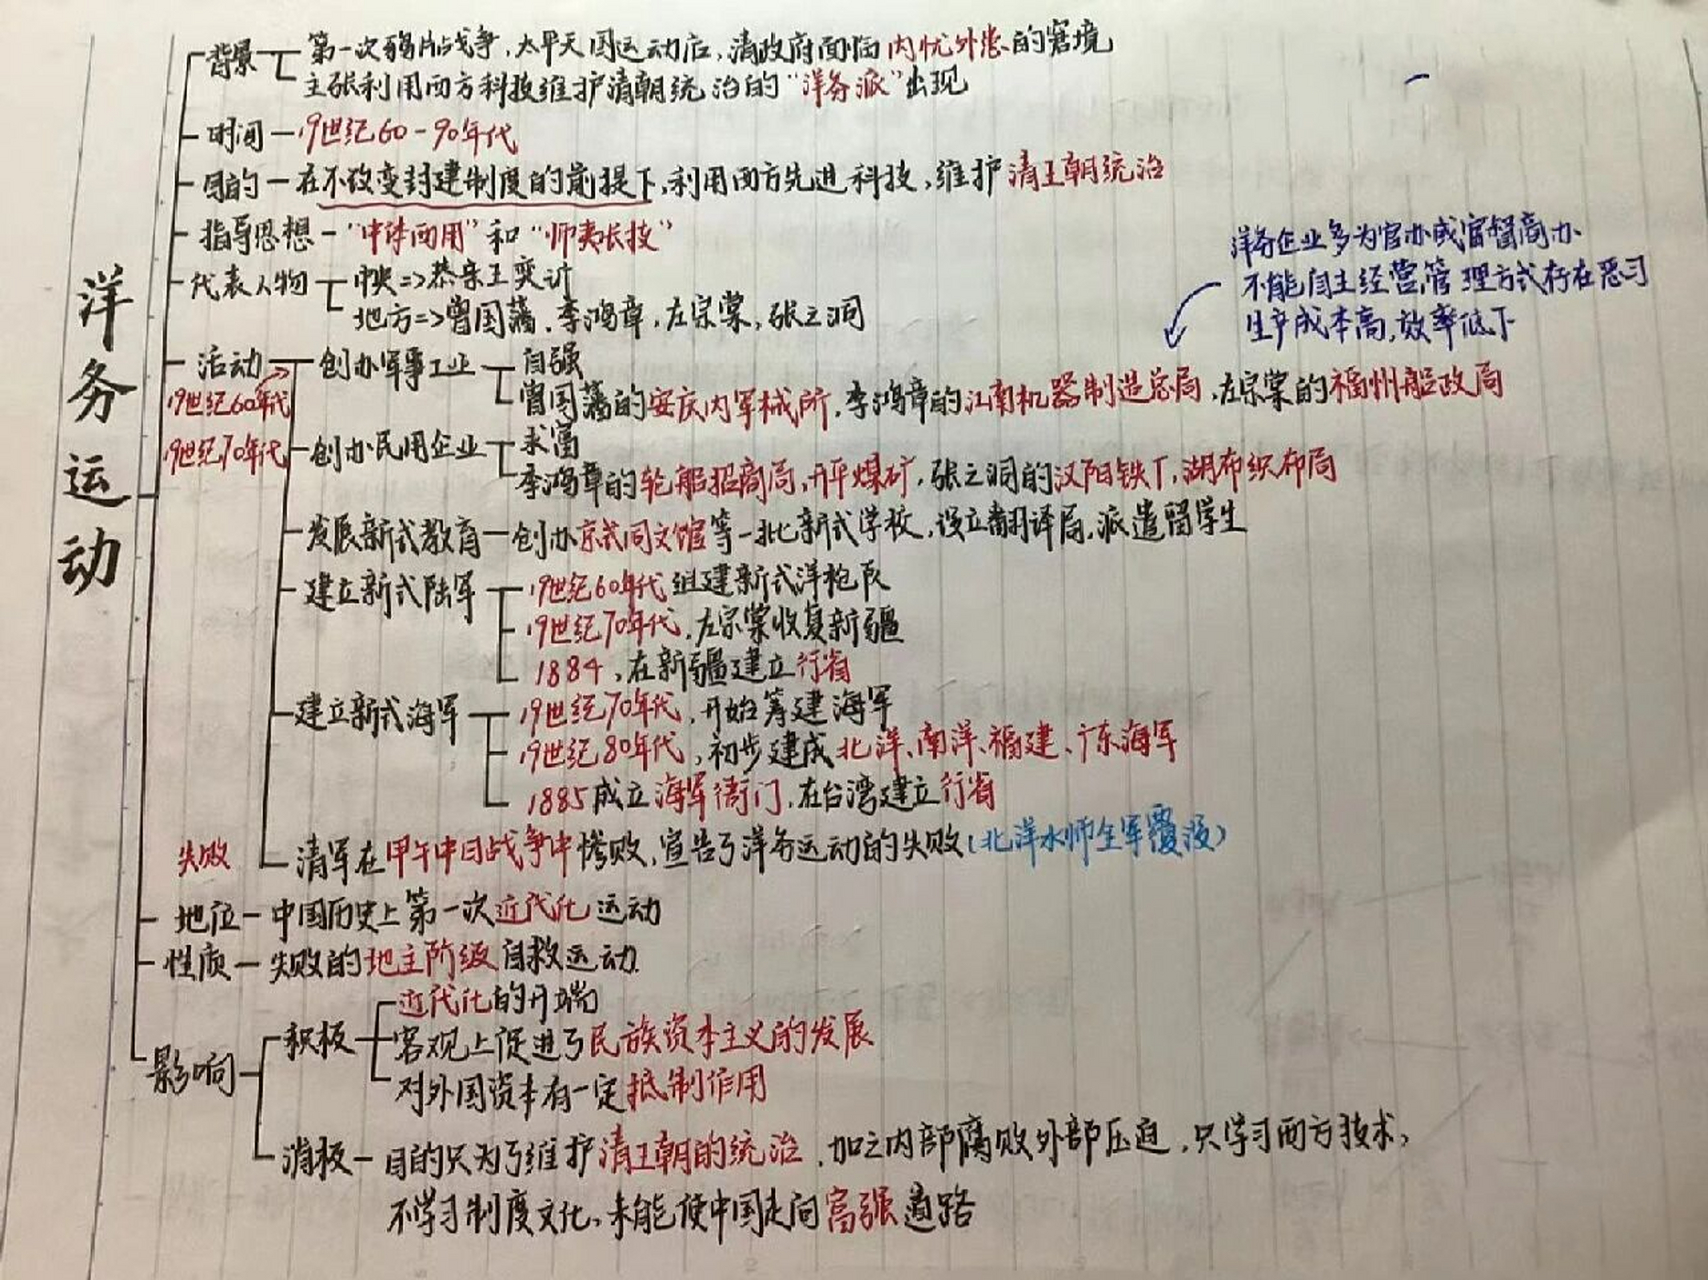 洋务运动
背景
第一次鸦片战争,太平天国运动后,清政府面临内忧外患的窘境
主张利用西方科技维护清朝统治的“洋务派”出现
时间 — 19世纪60-90年代
目的 — 在不改变封建制度的前提下,利用西方先进科技,维护清王朝统治
指导思想 — “中体西用”和“师夷长技”
洋务企业多为官办或官督商办
不能自主经营管理方式存在恶习
生产成本高,效率低下
代表人物
中央=>恭亲王奕䜣
地方=>曾国藩、李鸿章,左宗棠,张之洞
活动
19世纪60年代
创办军事工业
自强
曾国藩的安庆内军械所,李鸿章的江南机器制造总局,左宗棠的福州船政局
19世纪70年代
创办民用企业
求富
李鸿章的轮船招商局,开平煤矿,张之洞的汉阳铁厂,湖布织布局
发展新式教育 — 创办京式同文馆等一批新式学校,设立翻译局,派遣留学生
建立新式陆军
19世纪60年代组建新式洋枪队
19世纪70年代,左宗棠收复新疆
1884,在新疆建立行省
建立新式海军
19世纪70年代,开始筹建海军
19世纪80年代,初步建成北洋、南洋、福建、广东海军
1885成立海军衙门,在台湾建立行省
失败
清军在甲午中日战争中惨败,宣告了洋务运动的失败(北洋水师全军覆没)
地位 — 中国历史上第一次近代化运动
性质 — 失败的地主阶级自救运动.
影响
积极
近代化的开端
客观上促进了民族资本主义的发展
对外国资本有一定抵制作用
消极 — 目的只为了维护清王朝的统治,加之内部腐败外部压迫,只学习西方技术,
不学习制度文化,未能使中国走向富强道路